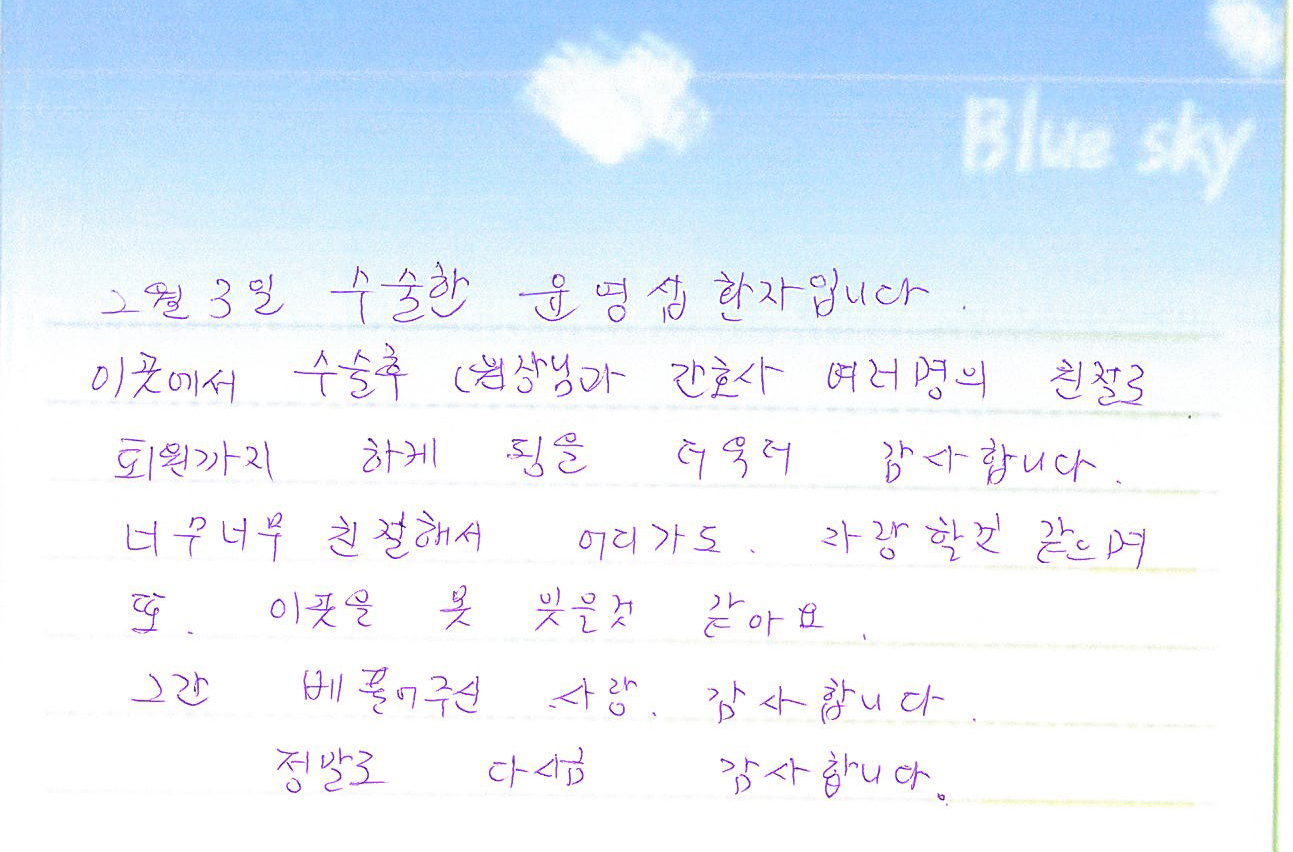 Blue sky
2월 3일 수술한 윤명섭 환자입니다.
이곳에서 수술후 (원장님)과 간호사 여러명의 친절로
퇴원까지 하게 됨을 더욱더 감사합니다.
너무너무 친절해서 어디가도. 자랑할것 같으며
또. 이곳을 못 잊을것 같아요.
그간 베풀어주신 사랑. 감사합니다.
정말로 다시금 감사합니다.